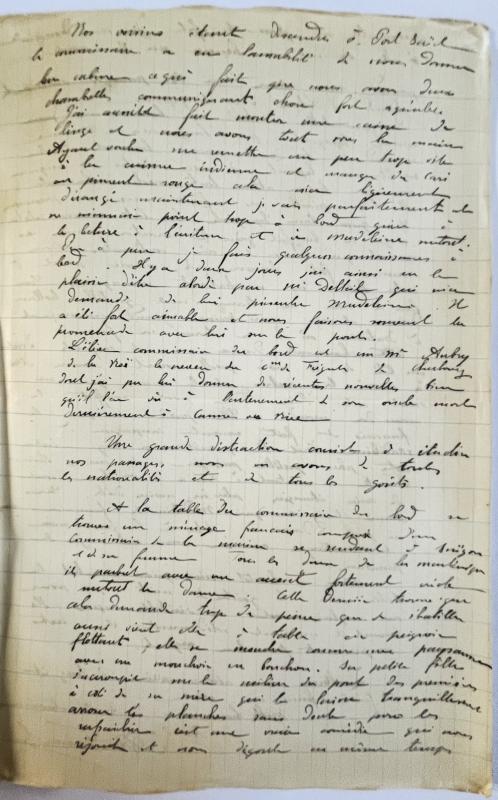 Nos voisins étant descendus à Port Saïd
le commissaire a eu l'amabilité de nous donner
leur cabine ce qui fait que nous avons deux
chambrettes communiquant chose fort agréable.
J'ai aussitôt fait monter une caisse de
linge et nous avons tout sous la main
Ayant voulu me remettre un peu trop vite
à la cuisine indienne et manger du cari
au piment rouge cela m'a légèrement
dérangé maintenant je vais parfaitement et
ne m'ennuie point trop à bord grâce à
la lecture à l'écriture et à Madeleine
Peu à peu je fais quelques connaissances à
bord. Il y a deux jours j'ai ainsi eu le
plaisir d'être abordé par Mr qui m'a
demandé de lui présenter Madeleine. Il
a été fort aimable et nous faisons souvent les
promenades avec lui sur le pont.
L'élève commissaire du bord est un Mr Aubry
de la le neveu du de de Cherbourg
dont j'ai pu lui donner de récentes nouvelles bien
qu'il l'ai vu à l'enterrement de son oncle mort
dernièrement à Cannes ou Nice
Une grande distraction consiste à étudier
nos passagers, nous en avons de toutes
les nationalités et de tous les goûts.
A la table du commissaire du bord se
trouve un ménage français composé d'un
commissaire de la marine se rendant à Saïgon
et de sa femme tous les deux de la martinique
ils parlent avec un accent fortement
surtout la dame. Cette dernière trouve que
cela demande trop de peine que de s'habiller
aussi vient elle à table en peignoir
flottant, elle se mouche comme une paysanne
avec un mouchoir en bouchon. Sa petite fille
s'accroupit sur le milieu du pont des premières
à côté de sa mère qui la laisse tranquillement
arroser les planches sans doute pour les
rafraîchir c'est une vraie comédie qui nous
réjouit et nous dégoûte en même temps